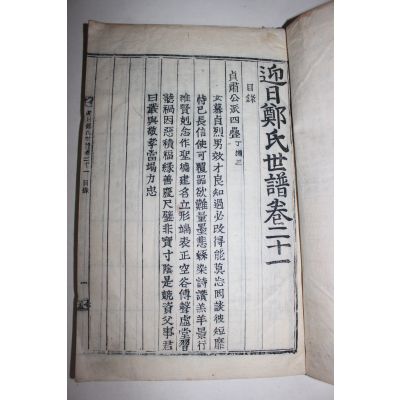 迎日鄭氏世譜卷二十一
目錄
貞肅公派四疊
女慕貞烈男效才良知過必改得能莫忘罔談彼短靡
恃己長信使可覆器欲難量墨悲絲染詩讚羔羊景行
維賢克念作聖德建名立形端表正空谷傳聲虛堂習
聽禍因惡積福緣善慶尺璧非寶寸陰是競資父事君
曰嚴與敬孝當竭力忠
迎日鄭氏世譜卷二十一 目錄 一